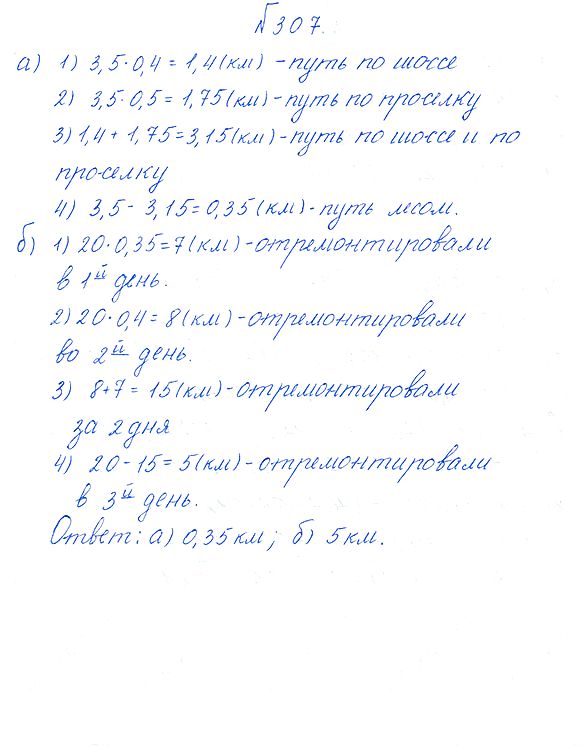 №307.
а) 1) 3,5·0,4=1,4(км) - путь по шоссе
2) 3,5·0,5=1,75(км)-путь по проселку
3) 1,4+1,75=3,15(км)-путь по шоссе и по
проселку
4) 3,5-3,15=0,35(км)-путь лесом.
б) 1) 20·0,35=7(км)-отремонтировали
в 1й день.
2) 20·0,4=8(км)-отремонтировали
во 2й день.
3) 8+7=15(км)-отремонтировали
за 2 дня
4) 20-15=5(км)-отремонтировали
в 3й день.
Ответ: а) 0,35км; б) 5км.